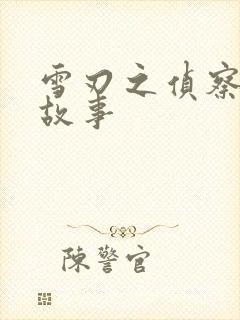 雪刃之偵察
故事
陳警官